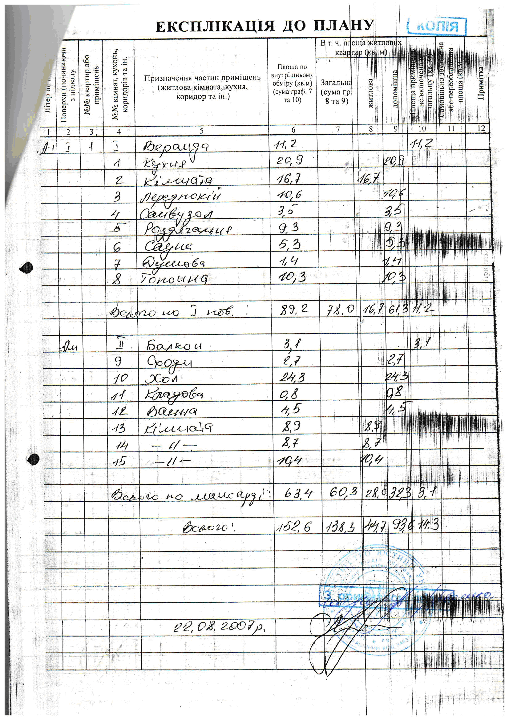 ЕКСПЛІКАЦІЯ ДО ПЛАНУ
КОПІЯ
Призначення частин приміщень (житлова кімната, кухня, коридор та ін.)
Площа по внутрішньому обміру (кв.м) (сума граф. 7 та 10)
В т. ч. площа житлових квартир (кв.м)
Загальна (сума гр. 8 та 9)
житлова
допоміжна
Примітка
1 2 3 4 5 6 7 8 9 10 11 12
I 1 I Веранда 11,2 11,2
1 Кухня 20,9 20,9
2 Кімната 16,7 16,7
3 Передпокій 10,6 10,6
4 Санвузол 3,5 3,5
5 Роздягальня 9,3 9,3
6 Сауна 5,3 5,3
7 Душова 1,4 1,4
8 Топочна 10,3 10,3
Всього по I пов. 89,2 78,0 16,7 61,3 11,2
II Балкон 3,1 3,1
9 Сходи 2,7 2,7
10 Хол 24,3 24,3
11 Кладова 0,8 0,8
12 Ванна 4,5 4,5
13 Кімната 8,9 8,9
14 –//– 8,7 8,7
15 –//– 10,4 10,4
Всього по мансарді: 63,4 60,3 28,0 32,3 3,1
Всього: 152,6 138,3 44,7 93,6 14,3
22.08.2007р.